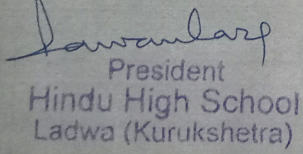 President
Hindu High School
Ladwa (Kurukshetra)